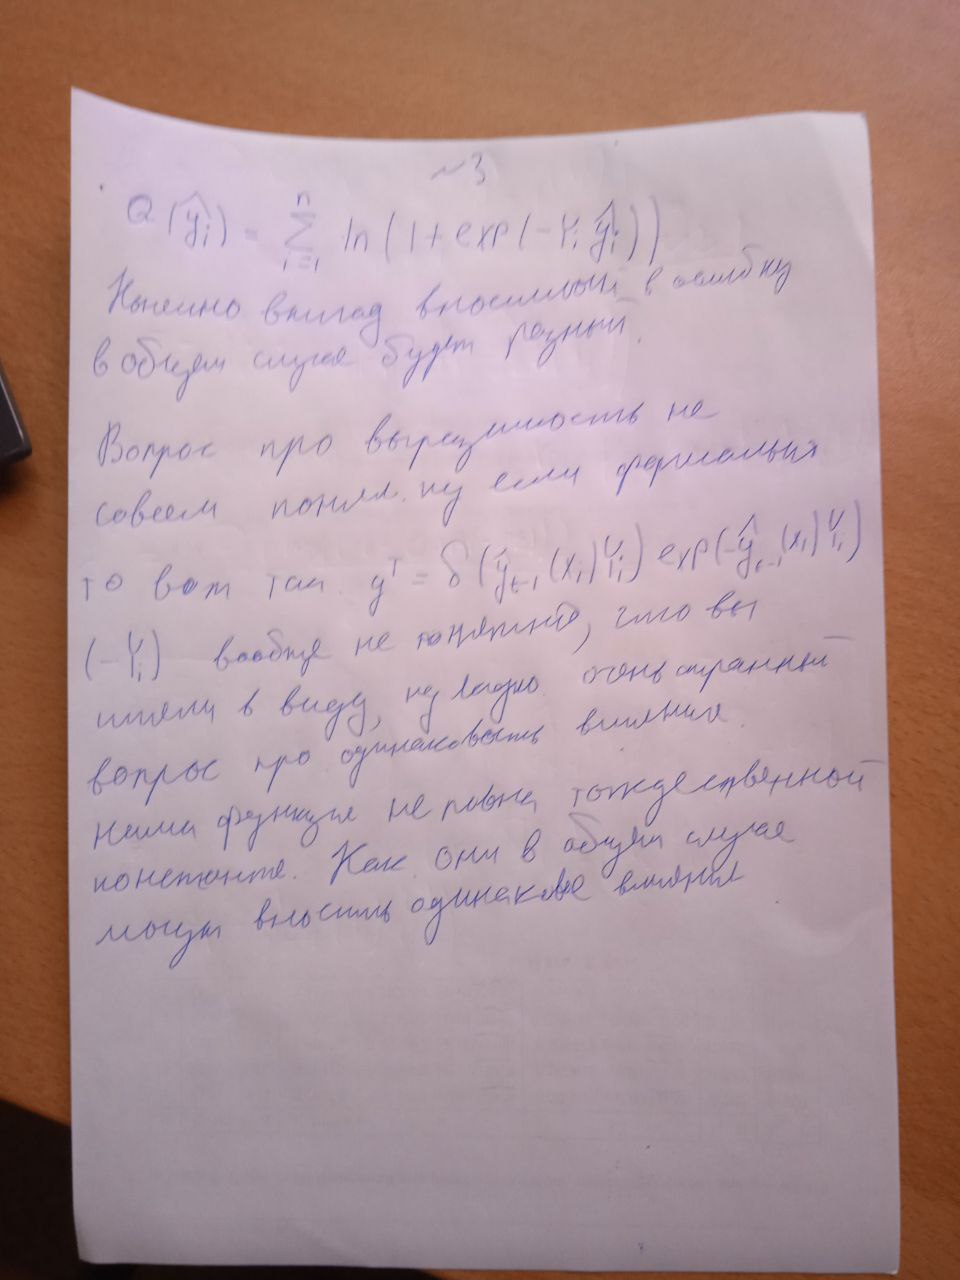 ~3
Q(ŷᵢ) = Σⁿᵢ₌₁ ln(1+exp(-Yᵢ ŷᵢ))
вклад вносимый в ошибку
в общем случае будет разный.
Вопрос про выразимость не
совсем понял. ну если формально
то вот так. gᵀ = δ(ŷₜ₋₁(xᵢ)Yᵢ) exp(-ŷₜ₋₁(xᵢ)Yᵢ)
(-Yᵢ) вообще не понятно, что вы
имели в виду, ну ладно. очень странный
вопрос про одинаковость влияния.
функция не равна тождественной
константе. Как они в общем случае
могут вносить одинаковое влияния